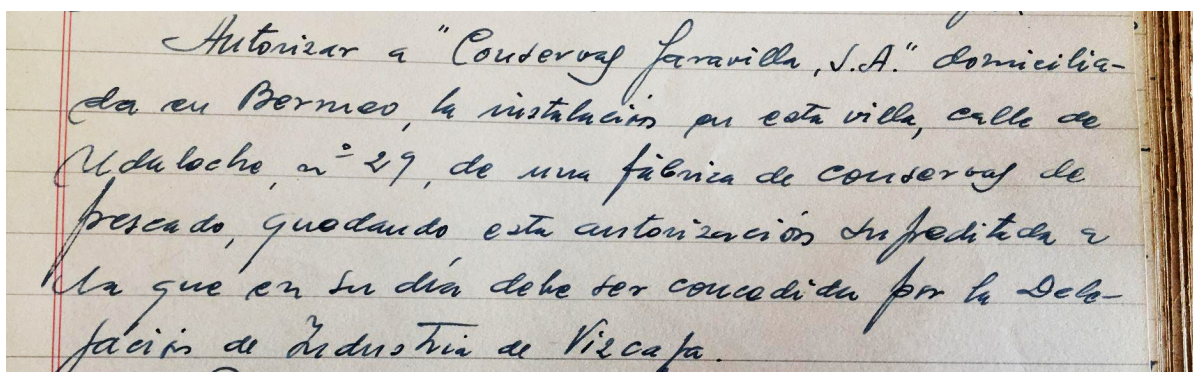 Autorizar a "Conservas Garavilla, S.A." domicilia-
da en Bermeo, la instalación en esta villa, calle de
Udaloche, nº 29, de una fábrica de conservas de
pescado, quedando esta autorización supeditada a
la que en su día debe ser concedida por la Dele-
gación de Industria de Vizcaya.